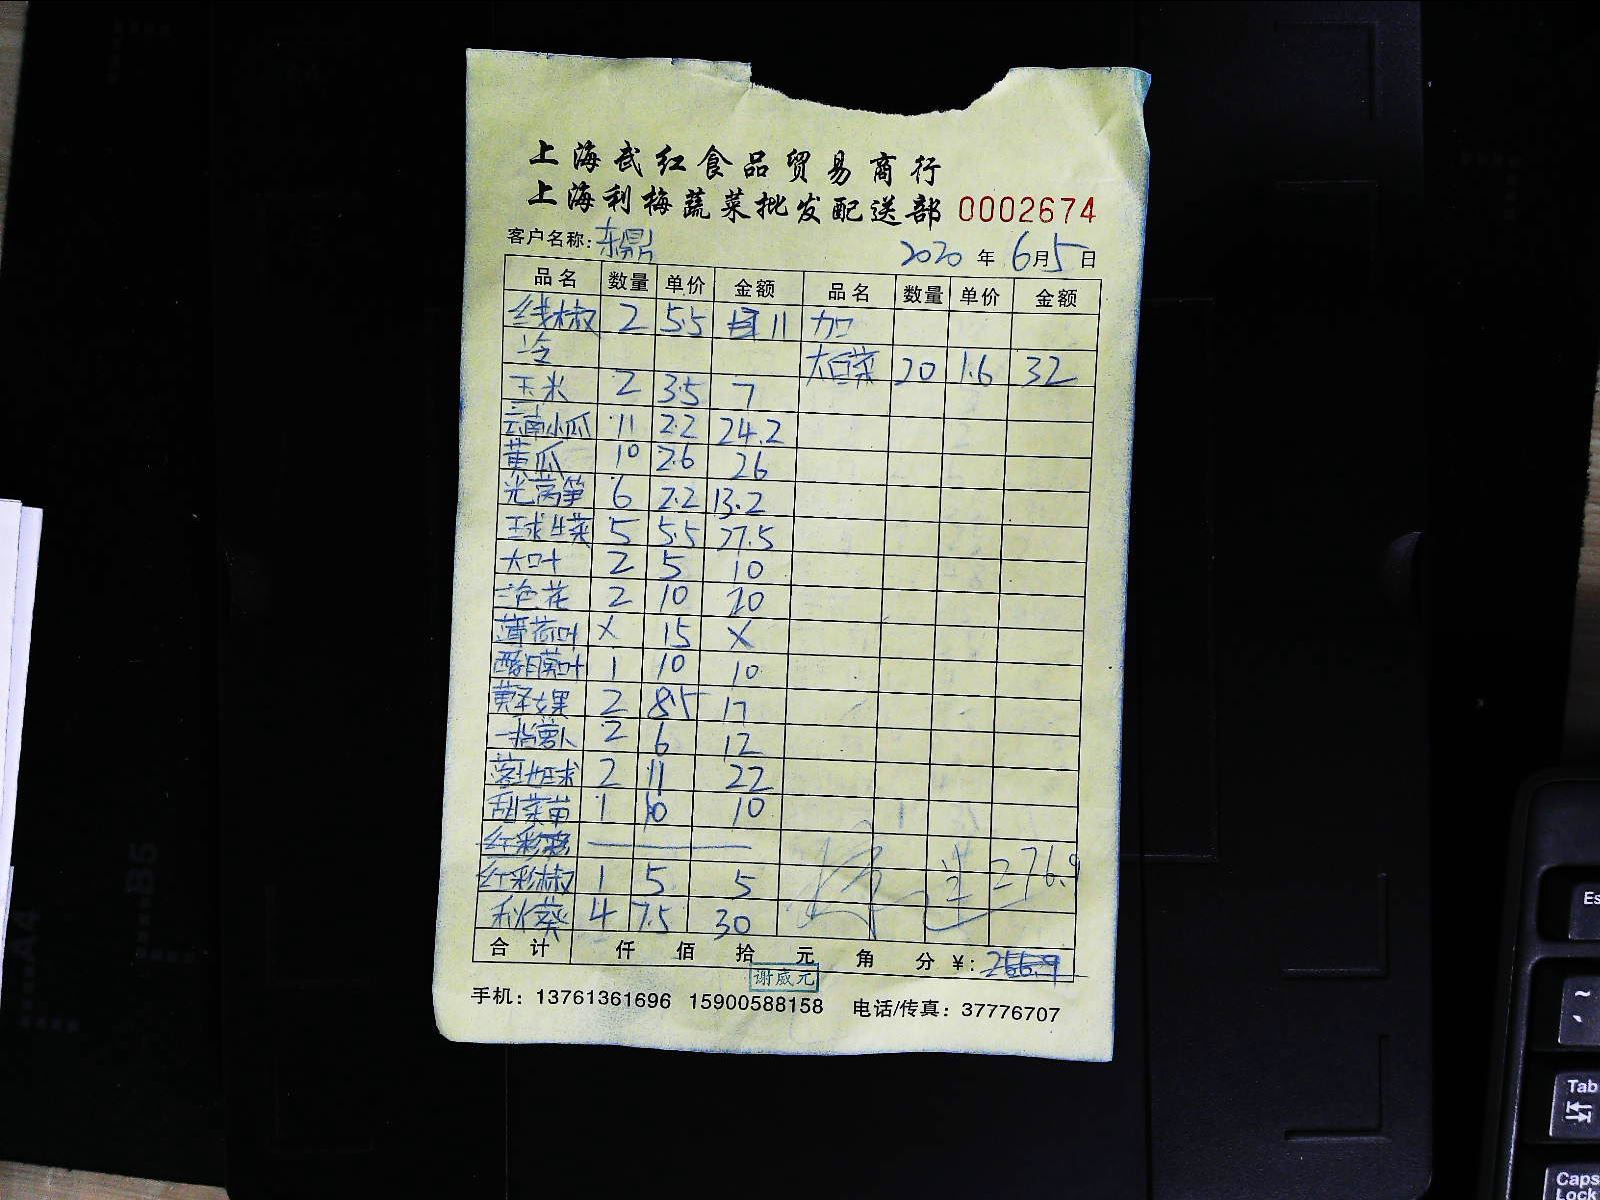 上海武红食品贸易商行
上海利梅蔬菜批发配送部 0002674
客户名称: 东鼎 2020 年 6月5日
品名 数量 单价 金额 品名 数量 单价 金额
线椒 2 5.5 11 加
冷 大白菜 20 1.6 32
玉米 2 3.5 7
云南小瓜 11 2.2 24.2
黄瓜 10 2.6 26
光莴笋 6 2.2 13.2
球生菜 5 5.5 27.5
大叶 2 5 10
三色花 2 10 20
薄荷叶 X 15 X
酸模叶 1 10 10
黄圣女果 2 8.5 17
一指萝卜 2 6 12
2 11 22
甜菜苗 1 10 10
红彩
红彩椒 1 5 5 276.9
秋葵 4 7.5 30
合计 仟 佰 拾 元 角 分 ¥: 266.9
谢威元
手机: 13761361696 15900588158 电话/传真: 37776707
A4
B5
Es
~
Tab
Caps
Lock